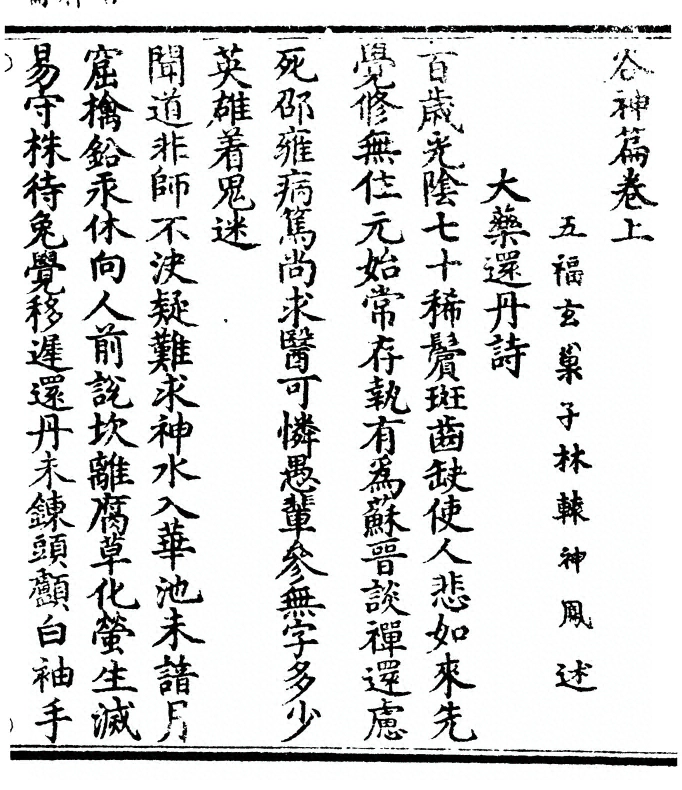 谷神篇卷上
五福玄巢子林轅神鳳述
大藥還丹詩
百歲光陰七十稀鬢斑齒缺使人悲如來先
覺修無住元始常存執有爲蘇晉談禪還慮
死邵雍病篤尚求醫可憐愚輩參無字多少
英雄着鬼迷
聞道非師不決疑難求神水入華池未諳月
窟擒鉛汞休向人前說坎離腐草化螢生滅
易守株待兔覺移遲還丹未鍊頭顱白袖手